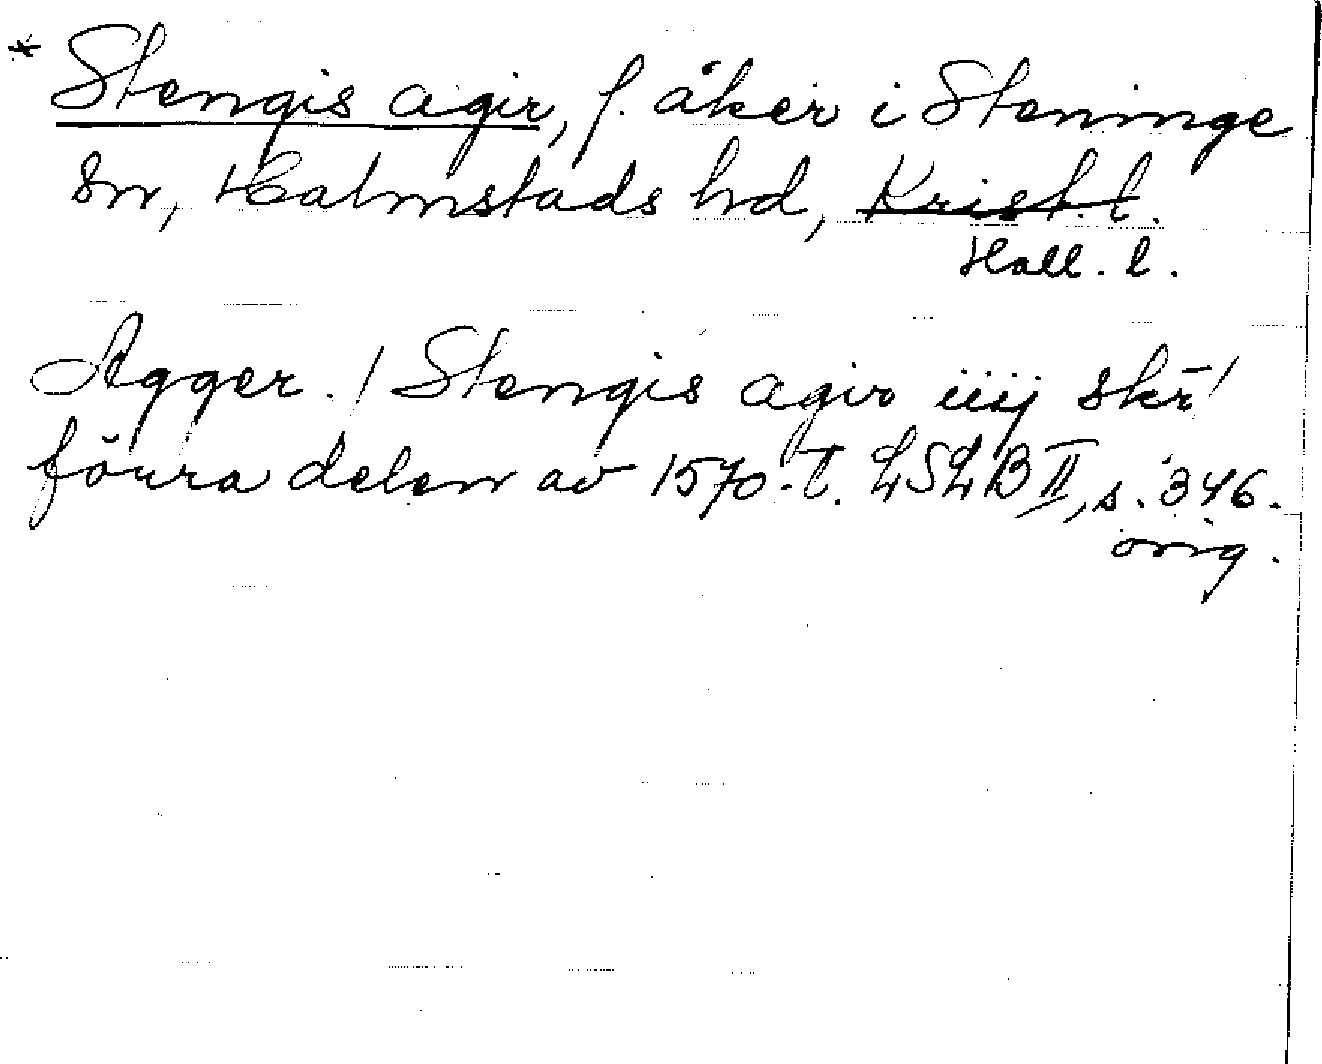 * Stengis agir, f. åker i Steninge
sn, Halmstads hd, Krist. l.
Hall. l.
Agger. / Stengis agir iiij skr̄ /
förra delen av 1570-t. LSLB II, s. 346.
orig.